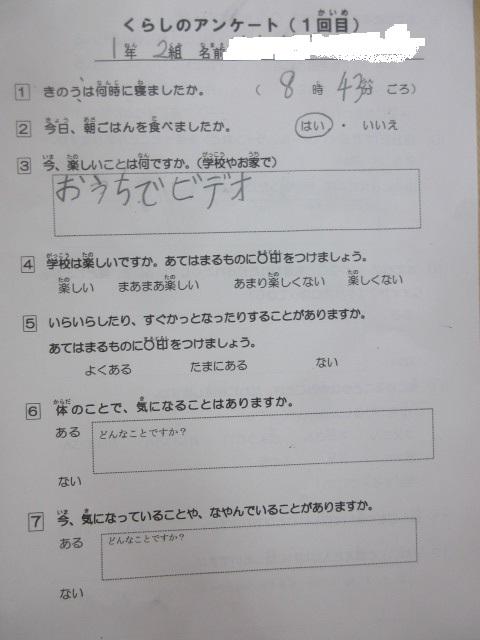 くらしのアンケート（1回目）
1年 2組 名前
1 きのうは何時に寝ましたか。 （ 8 時 43分 ごろ）
2 今日、朝ごはんを食べましたか。 はい ・ いいえ
3 今、楽しいことは何ですか。（学校やお家で）
おうちでビデオ
4 学校は楽しいですか。あてはまるものに○印をつけましょう。
楽しい まあまあ楽しい あまり楽しくない 楽しくない
5 いらいらしたり、すぐかっとなったりすることがありますか。
あてはまるものに○印をつけましょう。
よくある たまにある ない
6 体のことで、気になることはありますか。
ある どんなことですか？
ない
7 今、気になっていることや、なやんでいることがありますか。
ある どんなことですか？
ない